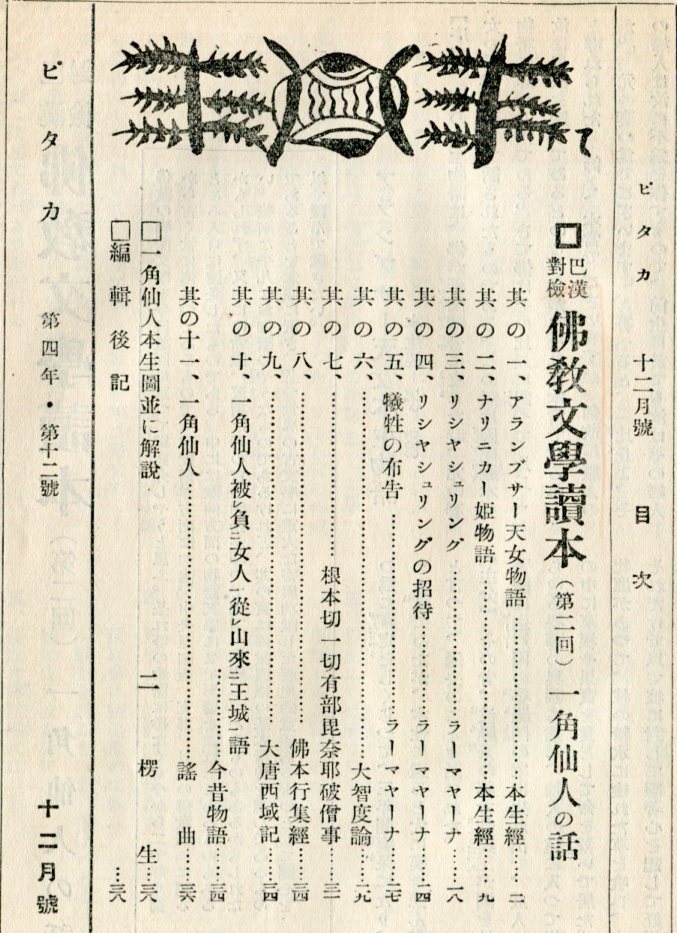 ピタカ 十二月號 目次
□巴漢對檢 佛教文學讀本（第二回）一角仙人の話
其の一、アランブサー天女物語……本生經……二
其の二、ナリニカー姫物語……本生經……九
其の三、リシヤシュリング……ラーマヤーナ……一八
其の四、リシヤシュリングの招待……ラーマヤーナ……二四
其の五、犧牲の布告……ラーマヤーナ……二七
其の六、……大智度論……二九
其の七、……根本切一切有部毘奈耶破僧事……三一
其の八、……佛本行集經……三四
其の九、……大唐西域記……三四
其の十、一角仙人被レ負二女人一從レ山來二王城一語
……今昔物語……三四
其の十一、一角仙人……謠曲……三六
□一角仙人本生圖並に解說 二楞生……三八
□編輯後記……三八
ピタカ 第四年・第十二號 十二月號